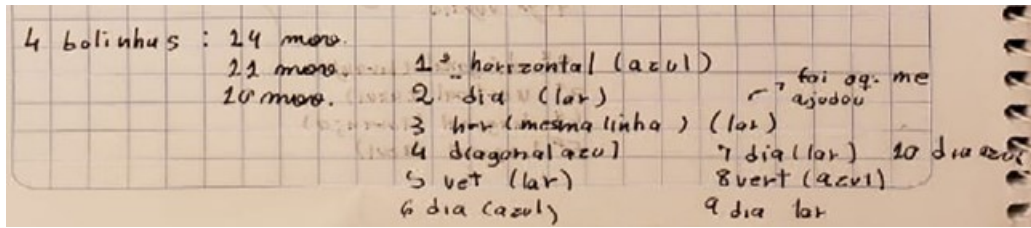 4 bolinhus : 24 mov.
22 mov.
10 mov.
1ª horizontal (azul)
2 dia (lar)
3 hor (mesma linha) (lar)
4 diagonal azul
5 vet (lar)
6 dia (azul)
foi aq. me
ajudou
7 dia (lar) 10 dia azul
8 vert (azul)
9 dia lar